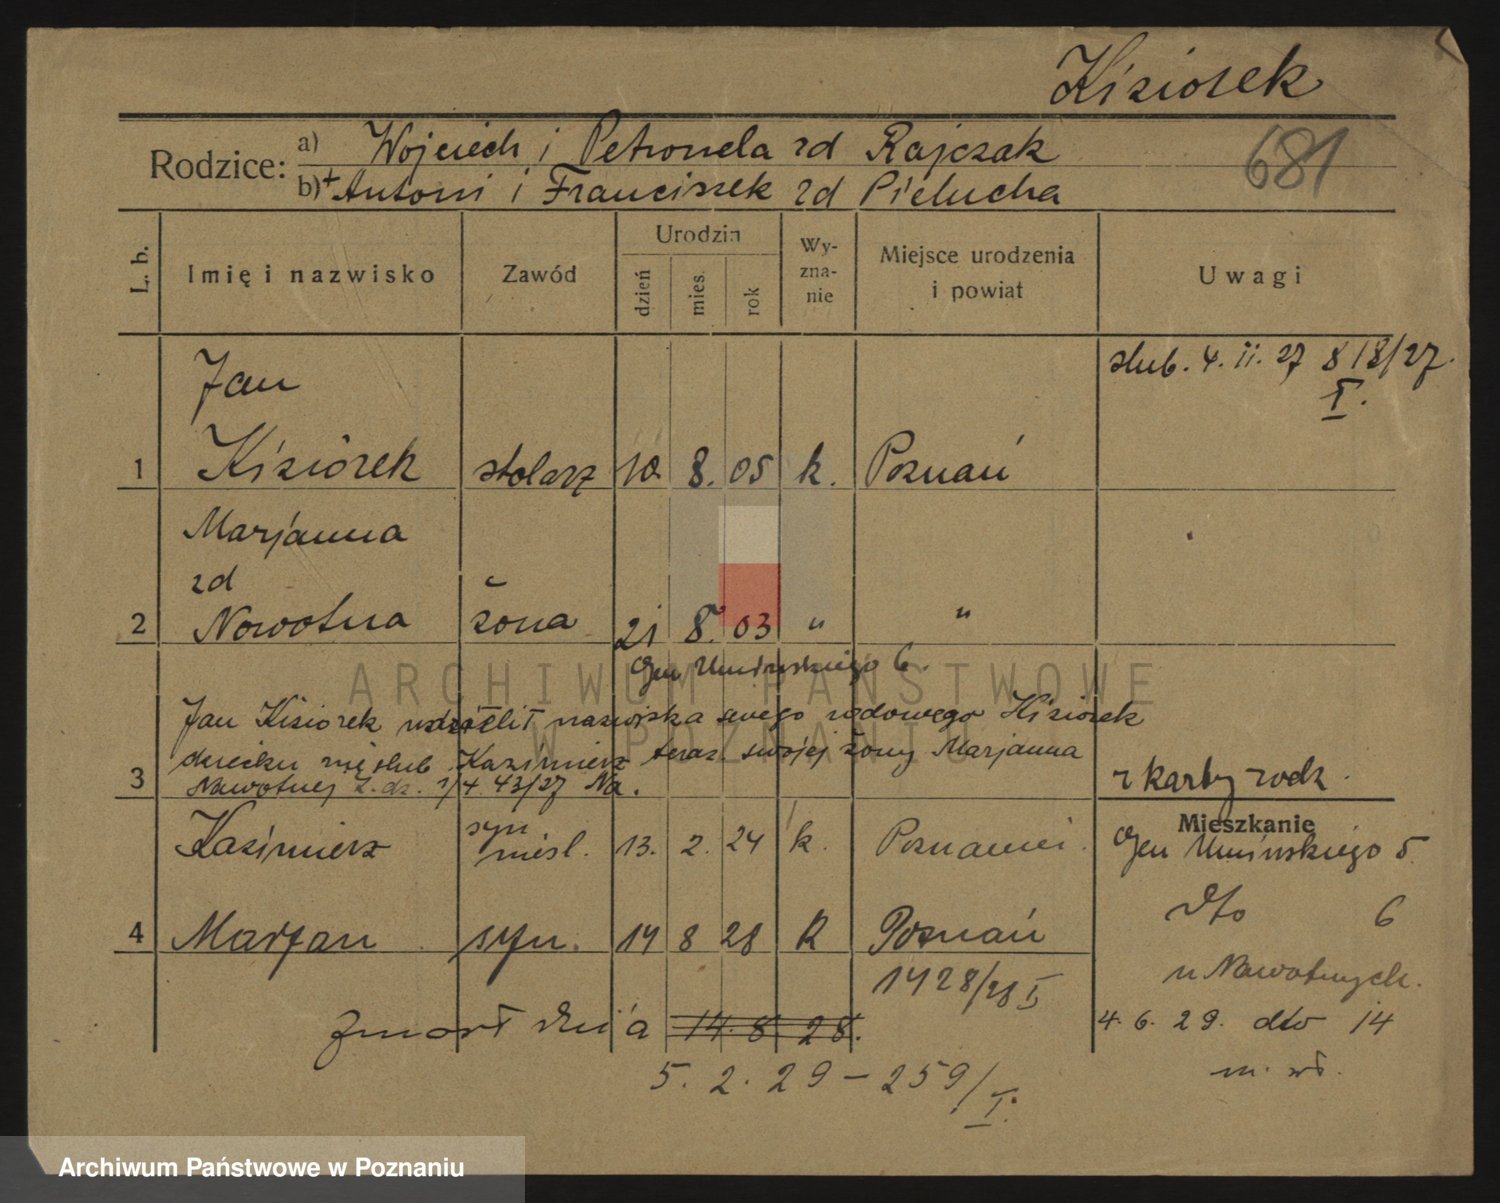 Kiziorek
681
Rodzice:
a) Wojciech i Petronela zd Rajczak
b) + Antoni i Franciszek zd Pielucha
L. b.
Imię i nazwisko
Zawód
Urodzin
dzień
mies.
rok
Wy-
zna-
nie
Miejsce urodzenia
i powiat
Uwagi
Jan
ślub. 4. II. 27 818/27.
I.
1 Kiziorek stolarz 10. 8. 05 k. Poznań
Marjanna
zd
2 Nowotna żona 21 8. 03 " "
Gen Umińskiego 6.
Jan Kiziorek udzielił nazwiska swego rodowego Kiziorek
dziecku nieślub. Kazimierz teraz swojej żony Marjanna
3 Nawotnej L. dz. 43/27 Na.
z karty rodz.
Kazimierz syn nieśl. 13. 2. 24 k. Poznaniu.
Mieszkanie
Gen Umińskiego 5
dto 6
4 Marjan syn. 14 8 28 k Poznań
1428/28 I
u Nawotnych.
zmarł dnia 14. 8. 28.
4. 6. 29. dto 14
m. wł.
5. 2. 29 – 259/I.
ARCHIWUM PAŃSTWOWE
W POZNANIU
Archiwum Państwowe w Poznaniu